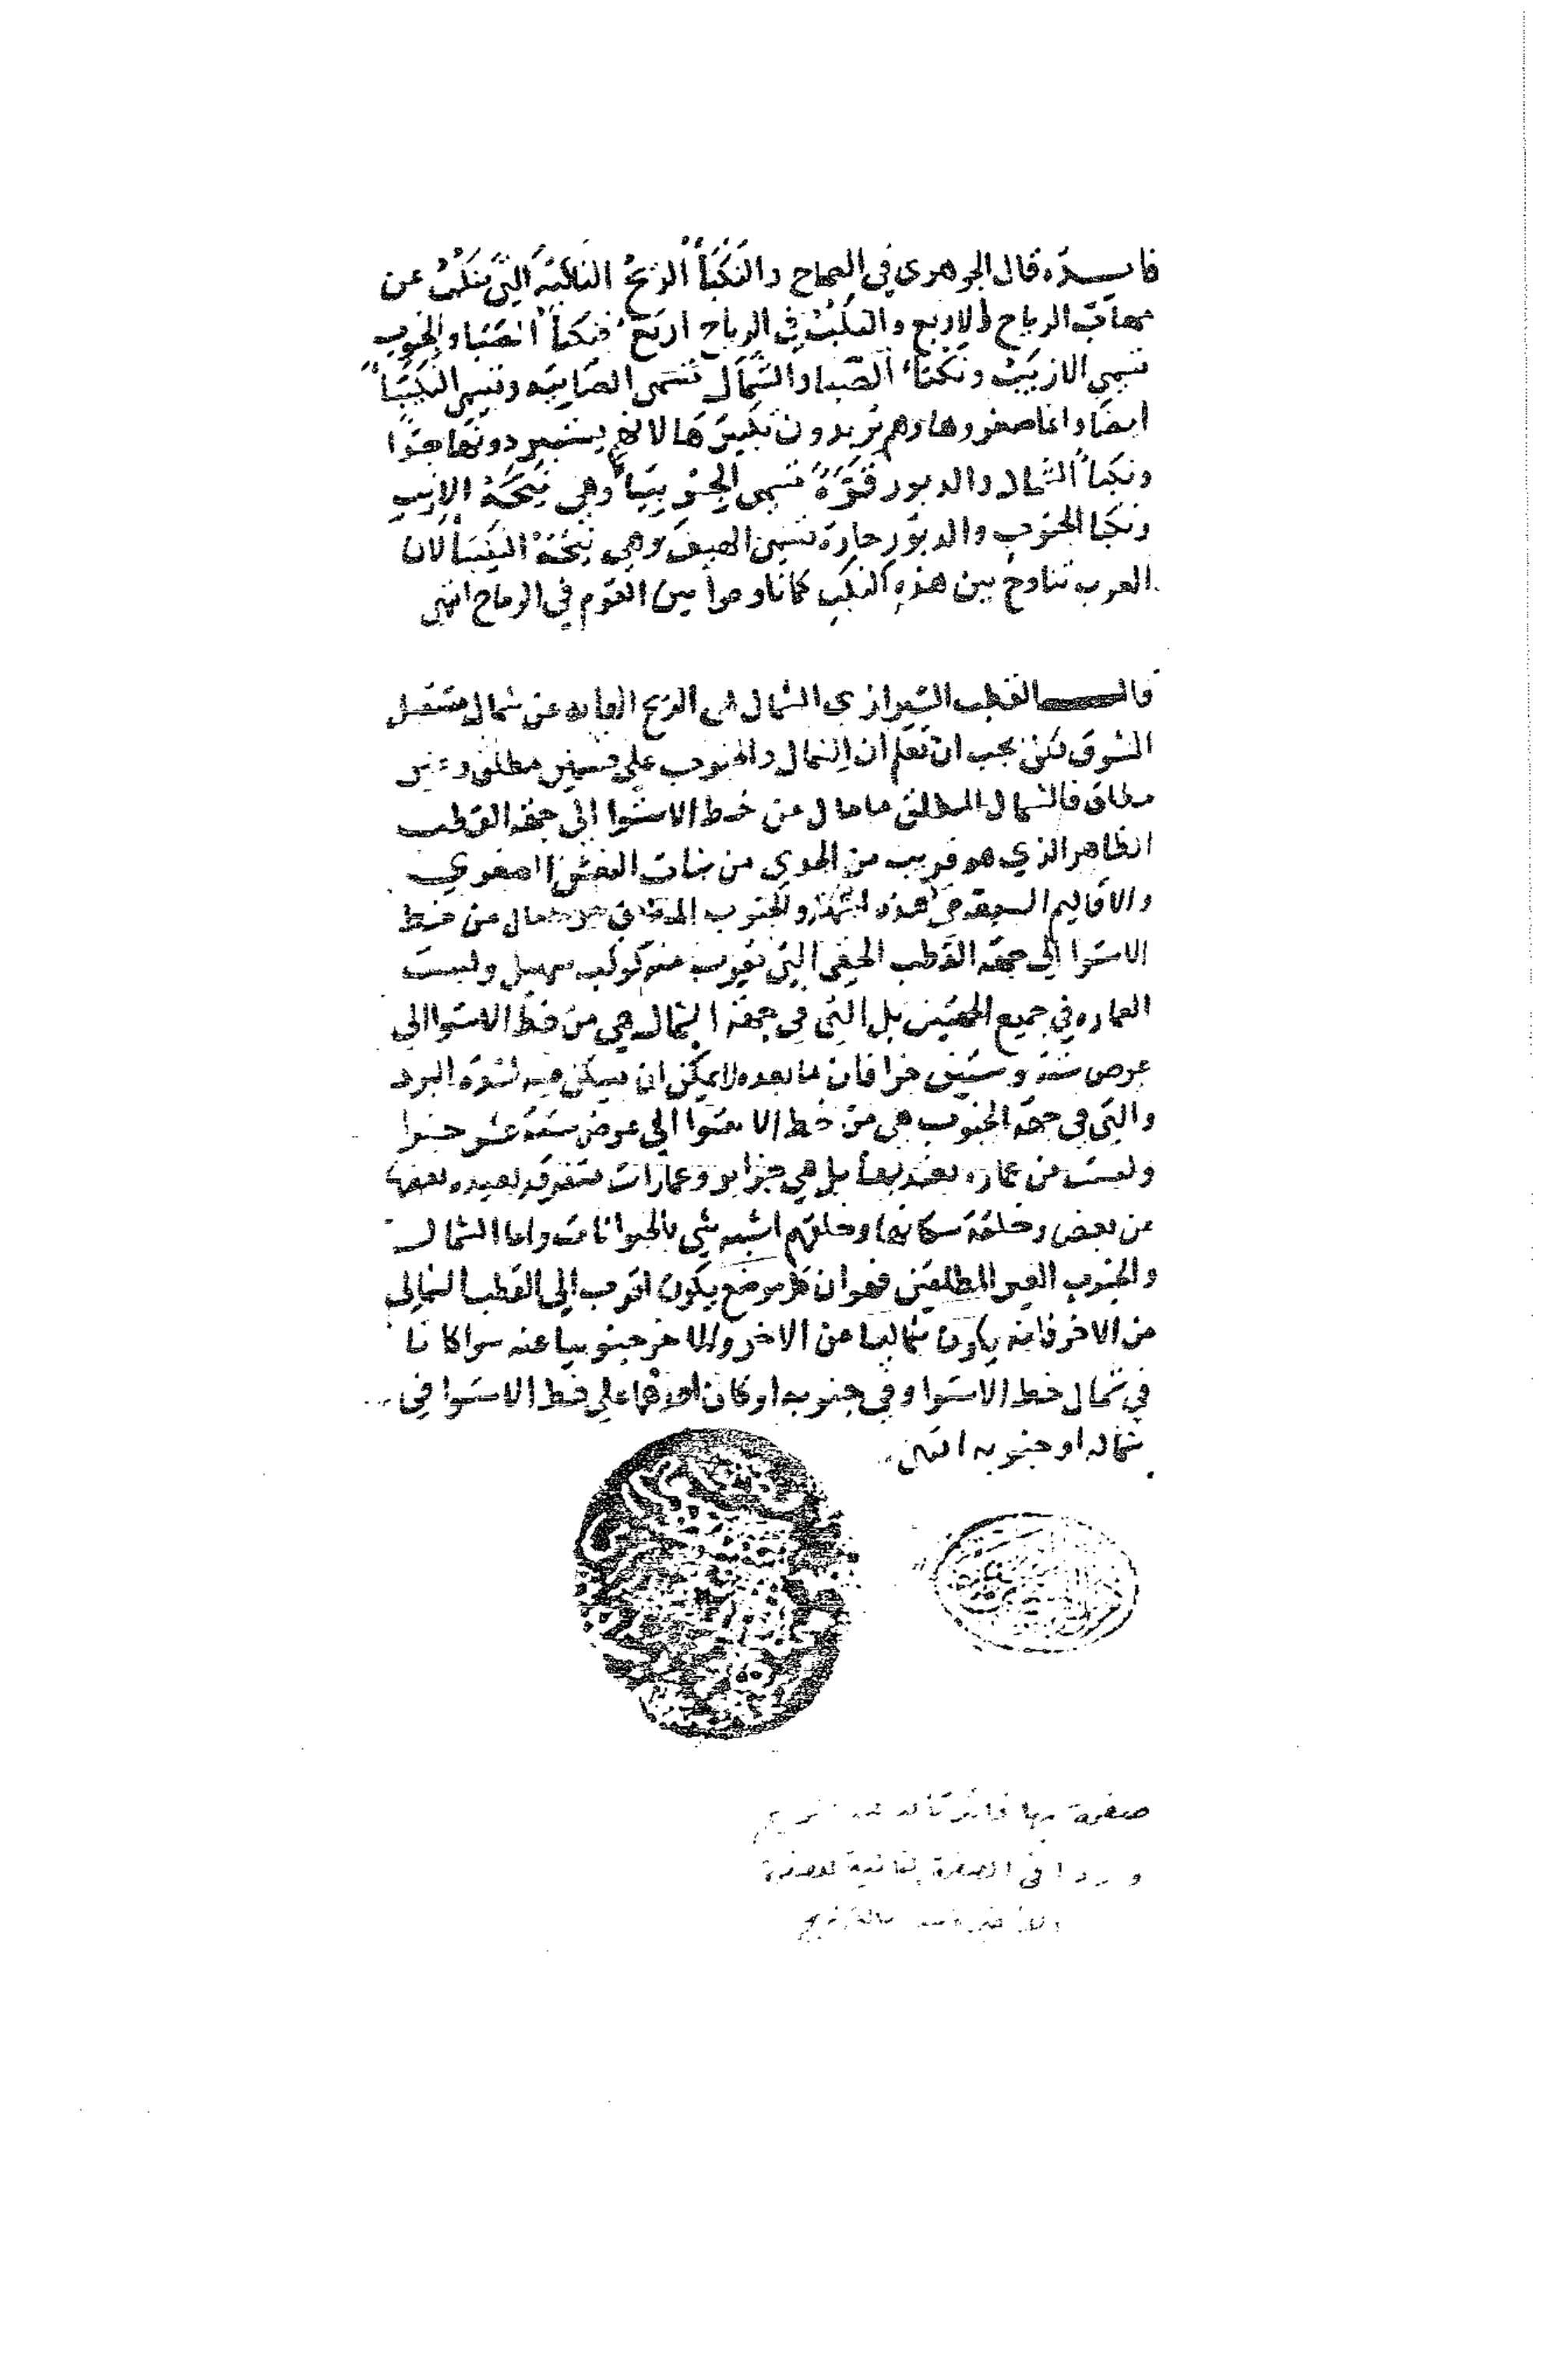 فايـــدة قال الجوهري في الصحاح والنَّكْبَاُ الرّيحُ الناكبَة التي تنكُبُ عن
مهابّ الرياح الاربع والنكبُ في الرياح اربعٌ فنكبآ الصَبَا والجنوب
تسمي الازيَبَ ونكباء الصَبا والشَّمال تسمى الصَابيَه وتسمى النكيبَآ
ايضا وانما صغروها وهم يريدون تكبيرَها لانهم يستبردونَها جدّا
ونكبآ الشمال والدبور قَرَّةٌ تسمى الجِرْبِيَآ وهي نَيّحَةُ الازيب
ونكبا الجنوب والدبور حارة تسمى الهيفَ وهي نيّحَة النكيبَآ لان
العرب تناوح بين هذه النكب كما ناوحوا بين القوم في الرياح انتهى
قالـــــ القطب الشيرازي الشمال هي الريح الهابه عن شمال مستقبل
الشرق لكن يجب ان تعلم ان الشمال والجنوب على قسمين مطلق وغير
مطلق فالشمال المطلق ما مال من خط الاستوا الى جهة القطب
الظاهر الذي هو قريب من الجدي من بنات النعش الصغرى
والاقاليم السبعه في هذه الجهة والجنوب المطلق هو ما مال من خط
الاستوا الى جهة القطب الخفي التي تقرب منه كوكب سهيل وليست
العماره في جميع الجهتين بل التي في جهة الشمال هي من خط الاستوا الى
عرض ستة وستين جزا فان ما بعده لا يمكن ان يسكن فيه لشدة البرد
والتي في جهة الجنوب هي من خط الاستوا الى عرض ستة عشر جزا
وليست من عماره يعتد بها بل هي جزاير وعمارات متفرقه بعيده بعضها
عن بعض وخلقة سكانها وخلقهم اشبه شي بالحيوانات واما الشمال
والجنوب الغير المطلقين فهو ان كل موضع يكون اقرب الى القطب الشمالي
من الاخر فانه يكون شماليا عن الاخر والاخر جنوبيا عنه سوا كانا
في شمال خط الاستوا او في جنوبه او كان احدهما على خط الاستوا في
شماله او جنوبه انتهى
صفحة بها
في الصفحة الثانية